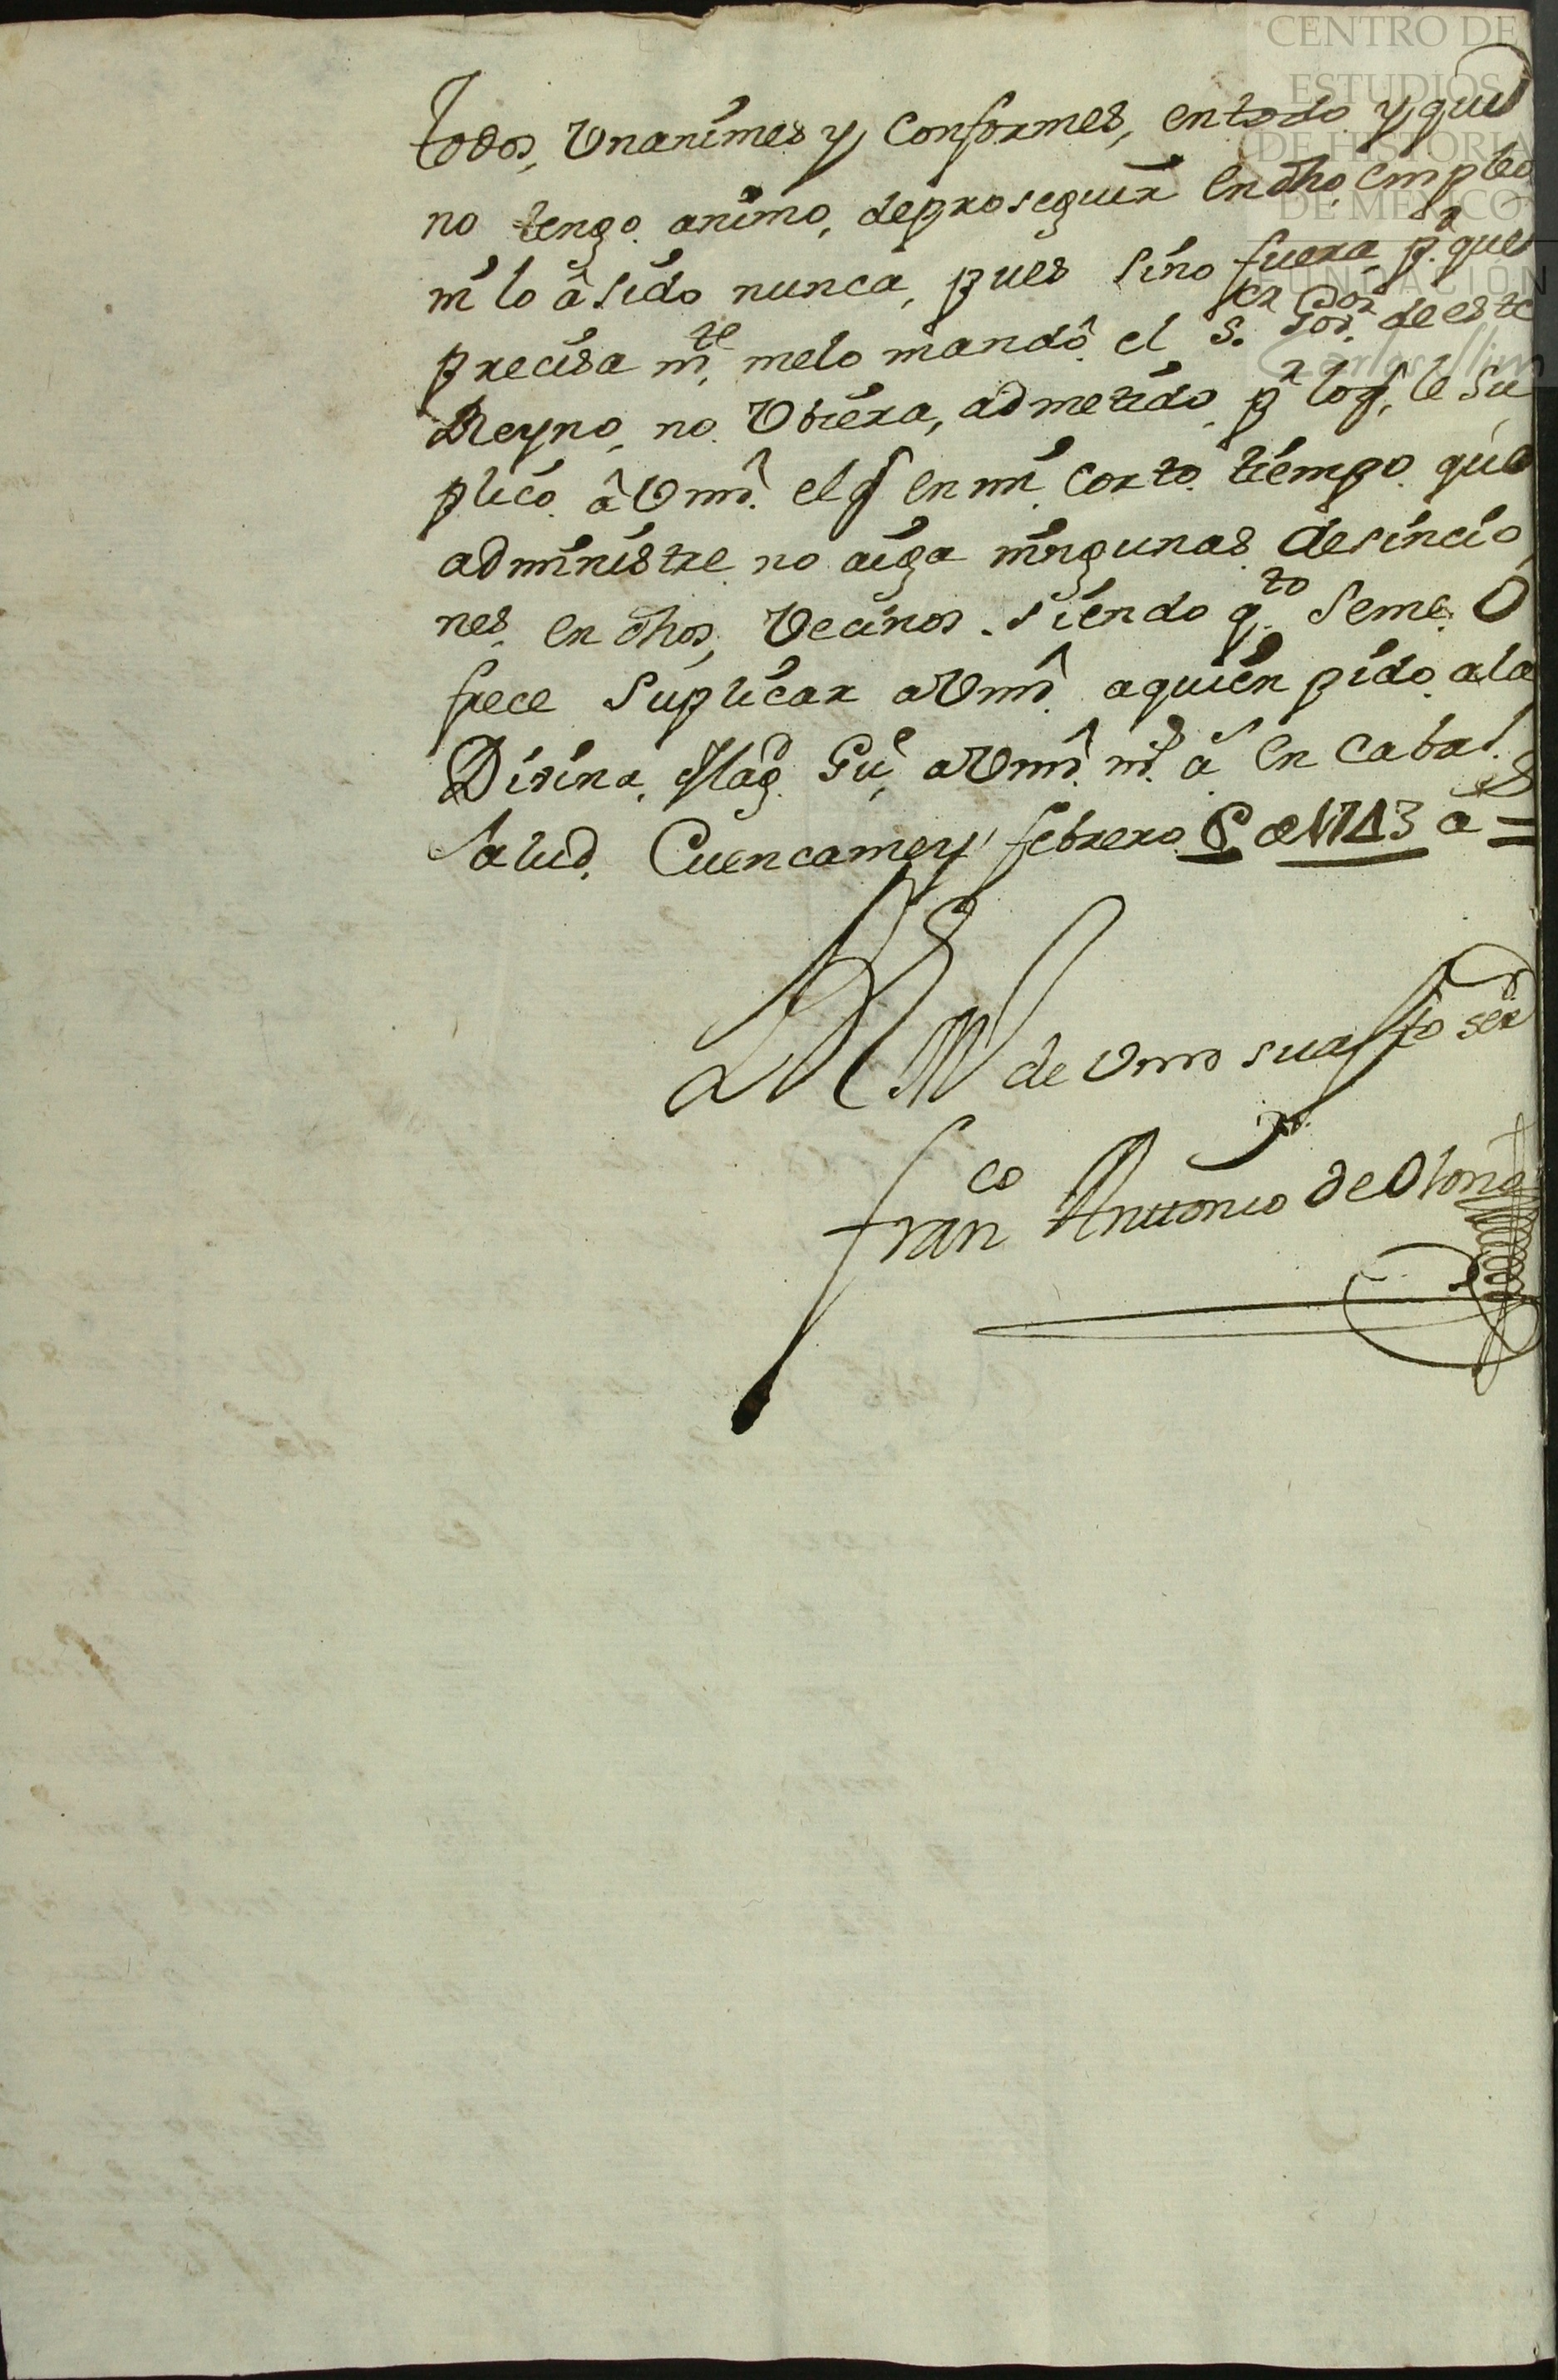 CENTRO DE
ESTUDIOS
DE HISTORIA
DE MÉXICO
FUNDACIÓN
Carlos Slim
todos, Vnanimes y Conformes, entodo y que
no tengo animo, deproseguir En dho empleo
ni lo â sido nunca, pues sino fuera pr que
precisa mte, melo mandô el Sor Gor de este
Reyno, no Vbiera, admetido pr loq, le Su
plico â Vmd el q En mi Corto tiempo que
administre no aiga ningunas desincio
nes En dhos, Vecinos. siendo qto Seme O
frece Suplicar aVmd aquien pido ala
Divina, Magd Gue aVmd ms as En Cabal
Salud, Cuencamey febrero de 1743 as
BLM de Vmd su afto serr
Franco Anttonio de Olona